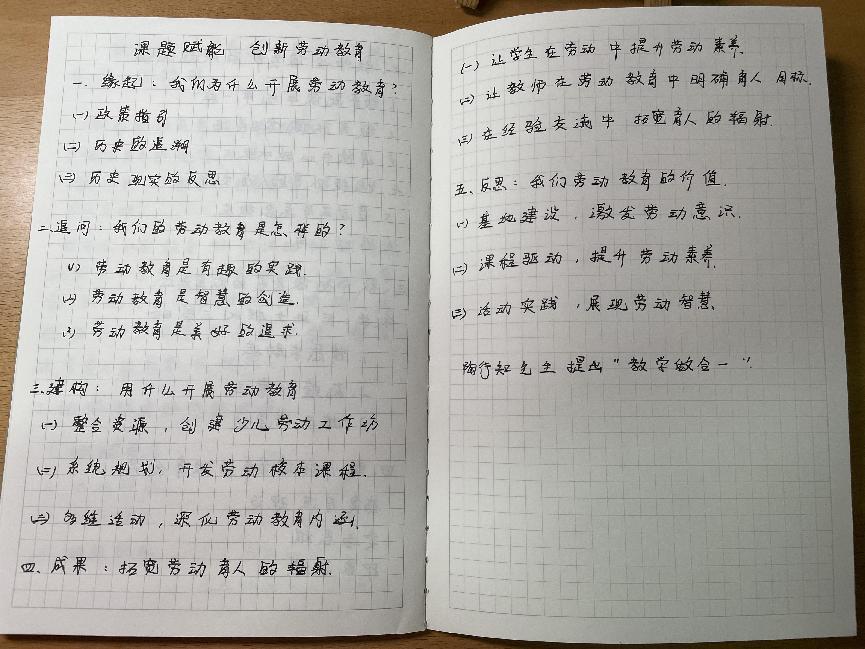 课题赋能 创新劳动教育
一、缘起：我们为什么开展劳动教育？
(一) 政策指引
(二) 历史的追溯
(三) 历史现实的反思
二、追问：我们的劳动教育是怎样的？
(1) 劳动教育是有趣的实践.
(2) 劳动教育是智慧的创造.
(3) 劳动教育是美好的追求.
三、建构：用什么开展劳动教育
(一) 整合资源，创建少儿劳动工作坊
(二) 系统规划，开发劳动校本课程.
(三) 多维活动，深化劳动教育内涵.
四、成果：拓宽劳动育人的辐射.
(一) 让学生在劳动中提升劳动素养.
(二) 让教师在劳动教育中明确育人目标.
(三) 在经验交流中拓宽育人的辐射.
五、反思：我们劳动教育的价值.
(一) 基地建设，激发劳动意识.
(二) 课程驱动，提升劳动素养.
(三) 活动实践，展现劳动智慧.
陶行知先生提出“教学做合一”.